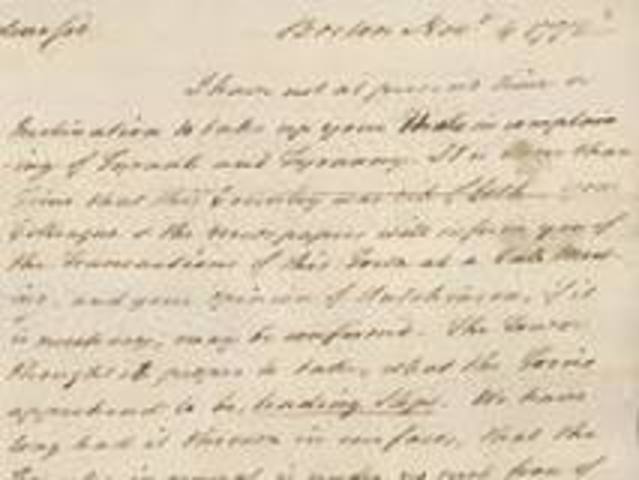 dear Sir Boston Nov.r 1772
I have not at present time or
Inclination to take up your in complain
ing of Tyrants and Tyranny. It is more than
time that this Country was rid of both. Your
Colleague & the news papers will inform you of
the Transactions of this Town at a late Meet-
ing, and your opinion of Hutchinson, if it
is necessary, may be confirmd. The Town
thought it proper to take, what the Tories
apprehend to be, leading Steps. We have
long had it thrown in our face, that the
in general is under no such of